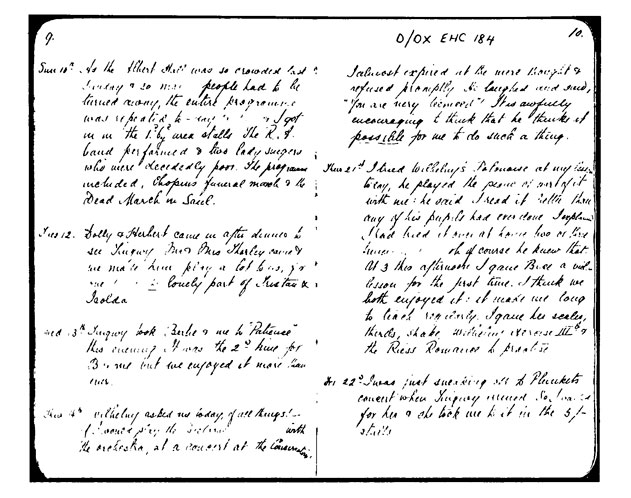 9.
Sun 10th. As the Albert Hall was so crowded last
Sunday & so many people had to be
turned away, the entire programme
was repeated to-day I got
in in the 1/- area stalls The R. A.
band performed & two lady singers
who were decidedly poor. The programme
included, Chopin's funeral march & the
Dead March in Saul.
Tues 12. Dolly & Herbert came in after dinner to
see Tingwy Mr & Mrs Thorley came &
we made him play a lot to us,
lovely part of Tristan &
Isolda
Wed 13th Tingwy took Bertie & me to "Patience"
this evening It was the 2nd time for
B & me but we enjoyed it more than
ever.
Thurs 14th Wilhelmy asked me today, of all things! —
if I would play the with
the orchestra, at a concert at the
D/OX EHC 184
10.
I almost expired at the mere thought &
refused promptly He laughed and said,
"You are very licenced" It is awfully
encouraging to think that he thinks it
possible for me to do such a thing.
Thurs 21st I tried Wilhelmy's Polonaise at my lesson
today, he played the piano of it
with me: he said I read it better than
any of his pupils had ever done
I had tried it over at home two or three
times of course he knew that.
At 3 this afternoon I gave Bice a violin
lesson for the first time. I think we
both enjoyed it: it made me long
to teach regularly. I gave her scales,
thirds, shake, Wilhelmy exercise III &
the Riess Romance to practise
Fri 22nd I was just sneaking off to Plunkets
concert when Tingwy arrived So I waited
for her & she took me to it in the 5/-
stalls